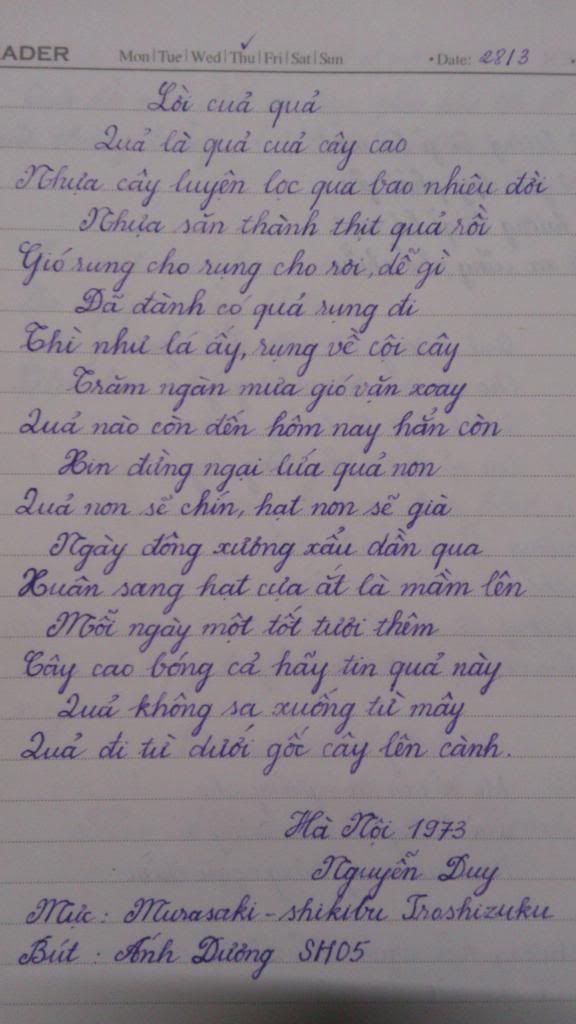 EADER Mon|Tue|Wed|Thu|Fri|Sat|Sun • Date: 28/3
Lời cuả quả
Quả là quả cuả cây cao
Nhựa cây luyện lọc qua bao nhiêu đời
Nhựa săn thành thịt quả rồi
Gió rung cho rụng cho rơi, dễ gì
Dã đành có quả rụng đi
Thì như lá ấy, rụng về cội cây
Trăm ngàn mưa gió vặn xoay
Quả nào còn đến hôm nay hẳn còn
Xin đừng ngại lứa quả non
Quả non sẽ chín, hạt non sẽ già
Ngày đông xương xẩu dần qua
Xuân sang hạt cựa ắt là mầm lên
Mỗi ngày một tốt tươi thêm
Cây cao bóng cả hãy tin quả này
Quả không sa xuống từ mây
Quả đi từ dưới gốc cây lên cành.
Hà Nội 1973
Nguyễn Duy
Mực : Murasaki - shikibu Iroshizuku
Bút : Ánh Dương SH05